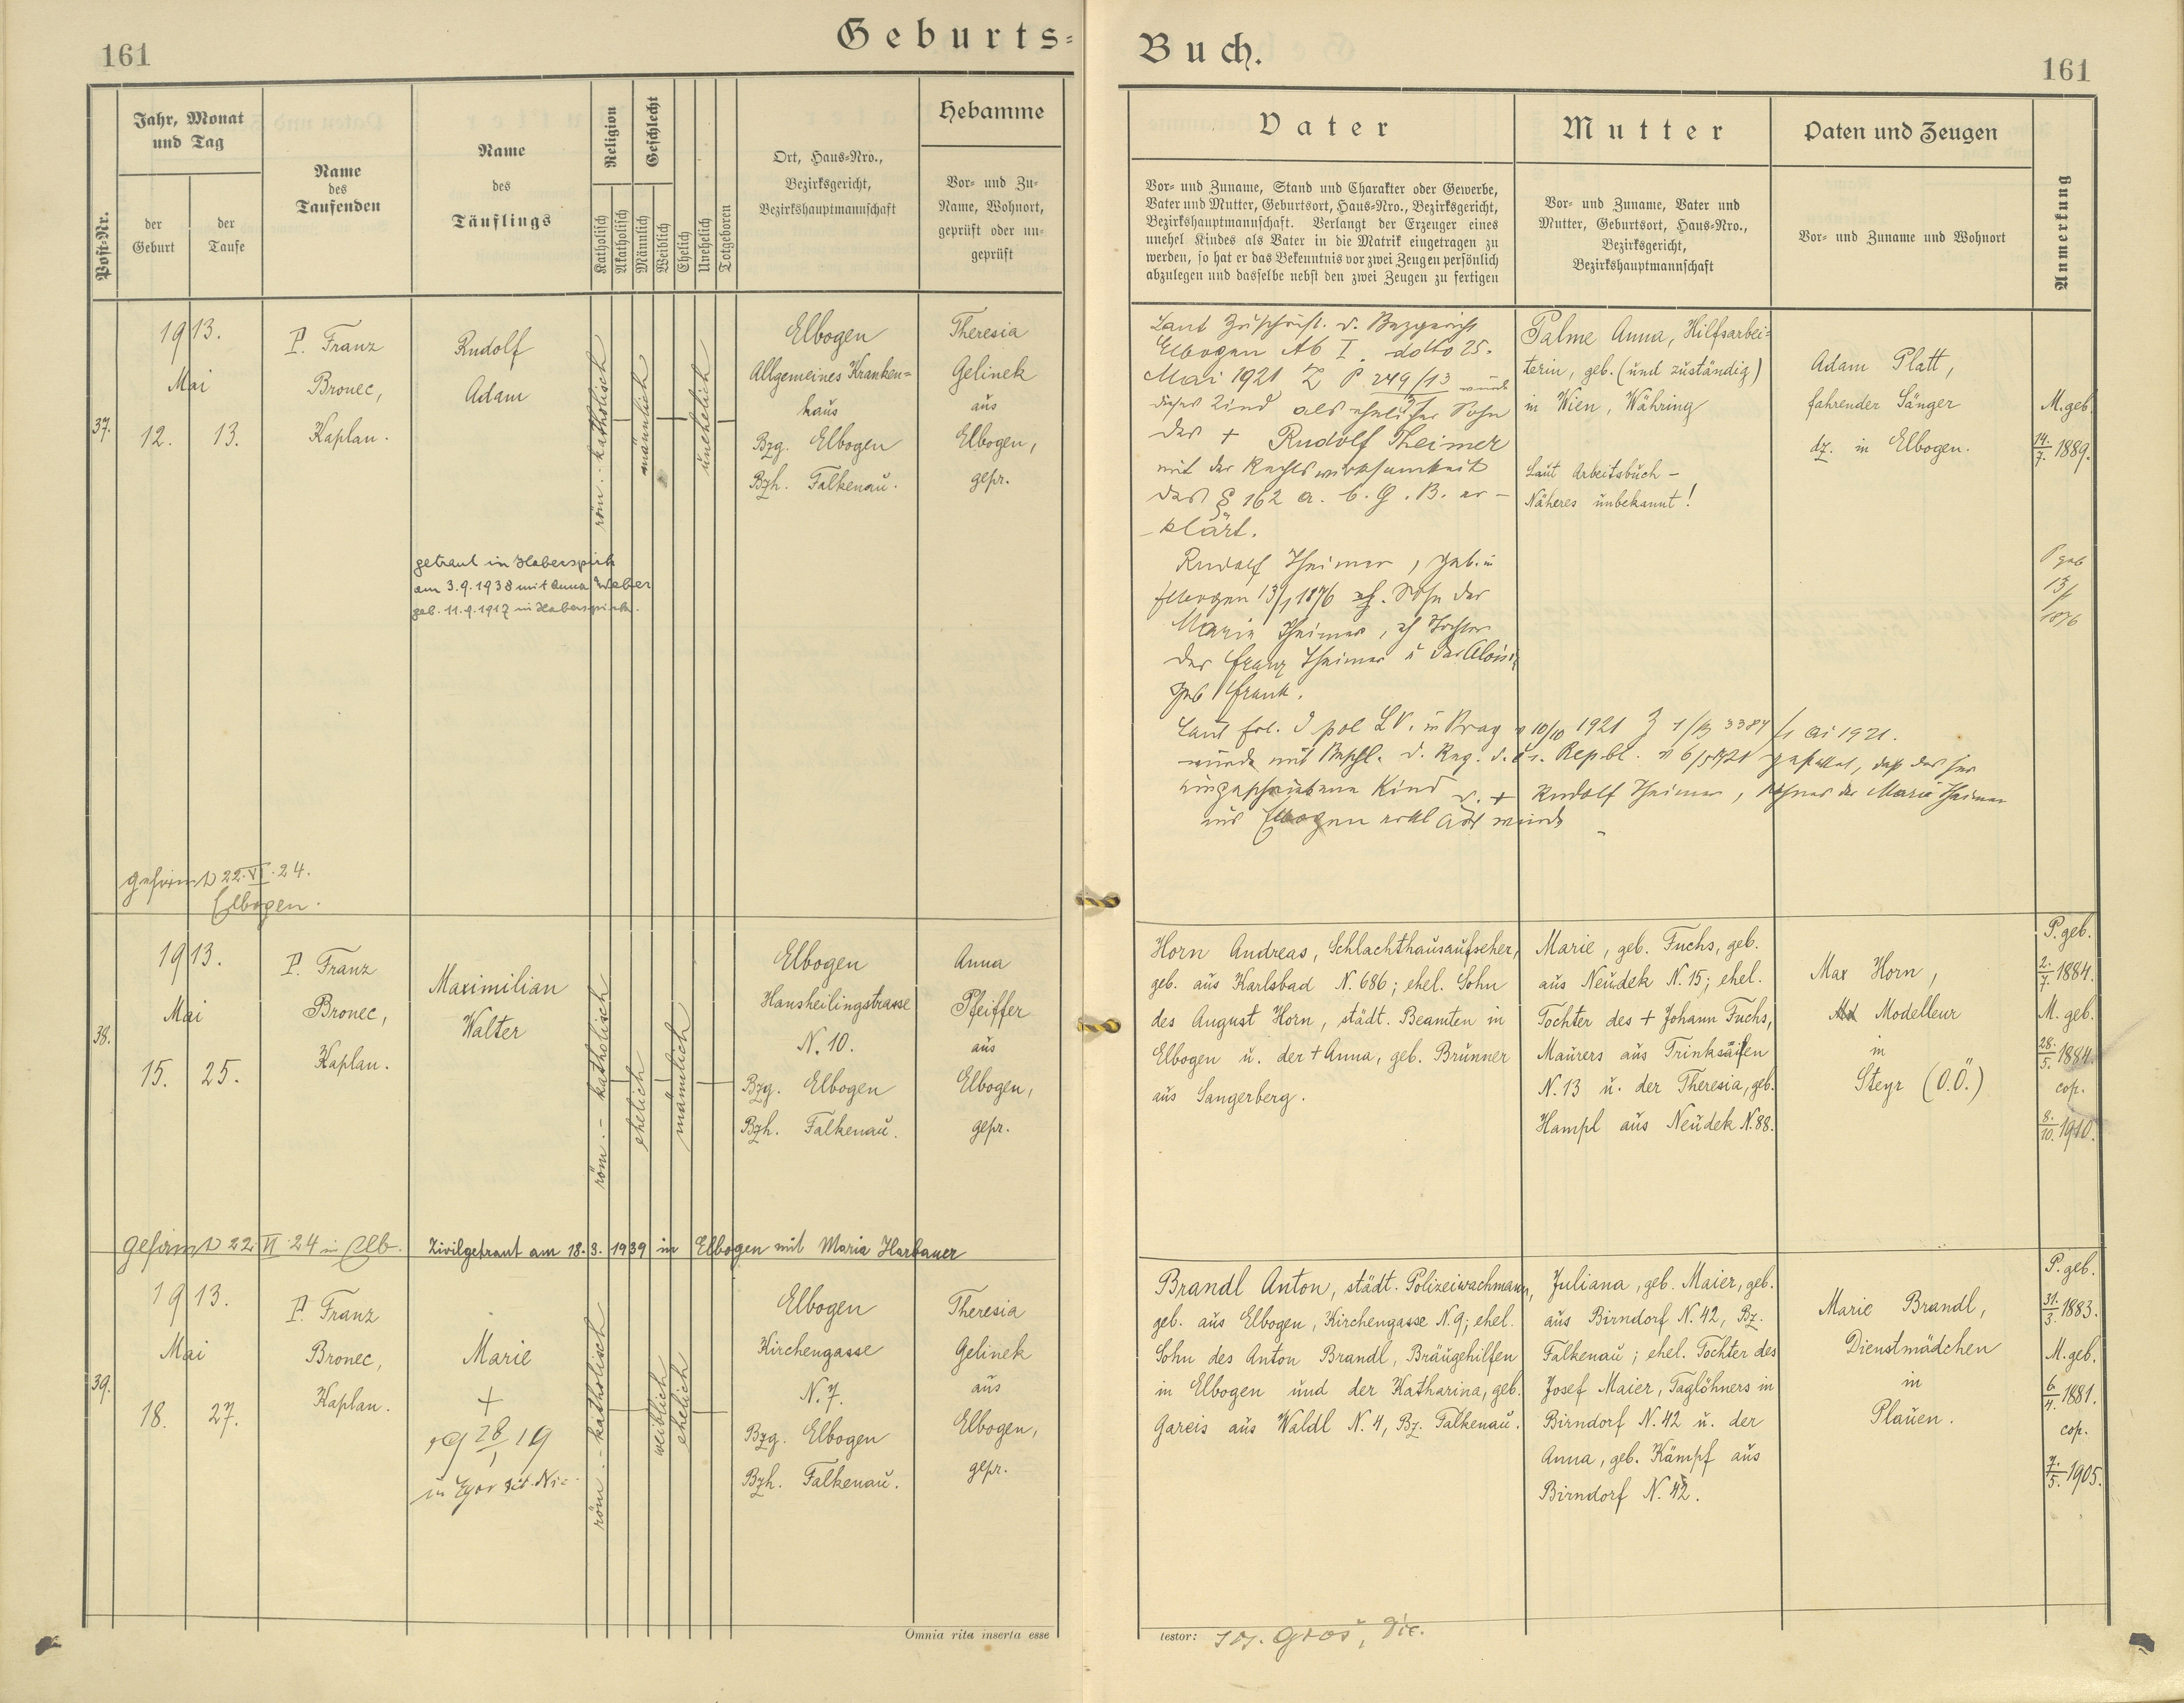 161
Geburts-
Post-Nr.
Jahr, Monat
und Tag
der
Geburt
der
Taufe
Name
des
Taufenden
Name
des
Täuflings
Religion
Katholisch
Akatholisch
Geschlecht
Männlich
Weiblich
Ehelich
Unehelich
Totgeboren
Ort, Haus-Nro.,
Bezirksgericht,
Bezirkshauptmannschaft
Hebamme
Vor- und Zu-
Name, Wohnort,
geprüft oder un-
geprüft
37.
1913.
Mai
12. 13.
P. Franz
Bronec,
Kaplan.
Rudolf
Adam
getraut in Haberspirk
am 3.9.1938 mit Anna Weber
geb. 11.9.1917 in Haberspirk.
röm.-katholisch
männlich
unehelich
Elbogen
Allgemeines Kranken=
haus
Bzg. Elbogen
Bzh. Falkenau.
Theresia
Gelinek
aus
Elbogen,
gepr.
gefirmt 22.VI.24.
Elbogen.
38.
1913.
Mai
15. 25.
P. Franz
Bronec,
Kaplan.
Maximilian
Walter
röm.-katholisch
ehelich
männlich
Elbogen
Hansheilingstrasse
N. 10.
Bzg. Elbogen
Bzh. Falkenau.
Anna
Pfeiffer
aus
Elbogen,
gepr.
gefirmt 22 VI 24 in Elb. Zivilgetraut am 18.3.1939 in Elbogen mit Maria Harbauer
39.
1913.
Mai
18. 27.
P. Franz
Bronec,
Kaplan.
Marie
+
28/1 19
röm.-katholisch
weiblich
ehelich
Elbogen
Kirchengasse
N. 7.
Bzg. Elbogen
Bzh. Falkenau.
Theresia
Gelinek
aus
Elbogen,
gepr.
Omnia rita inserta esse
Buch.
161
Vater
Vor- und Zuname, Stand und Charakter oder Gewerbe,
Vater und Mutter, Geburtsort, Haus-Nro., Bezirksgericht,
Bezirkshauptmannschaft. Verlangt der Erzeuger eines
unehel Kindes als Vater in die Matrik eingetragen zu
werden, so hat er das Bekenntnis vor zwei Zeugen persönlich
abzulegen und dasselbe nebst den zwei Zeugen zu fertigen
Mutter
Vor- und Zuname, Vater und
Mutter, Geburtsort, Haus-Nro.,
Bezirksgericht,
Bezirkshauptmannschaft
Paten und Zeugen
Vor- und Zuname und Wohnort
Anmerkung
Laut Zuschrift. d. Bezgericht
Elbogen Ab I. dotto 25.
Mai 1921 Z P 249/13 wurde
dieses Kind als ehelicher Sohn
des + Rudolf Theimer
mit der Rechtswirksamkeit
des § 162 a. b. G. B. er-
klärt.
Rudolf Theimer, geb. in
Elbogen 13/1 1876 Sohn der
Marie Theimer, eh Tochter
des Franz Theimer u der Aloisia
geb Frank.
Laut Erl. d pol LV. in Prag v 10/10 1921 Z 3384 ai 1921.
wurde mit d. Reg. d. Repbl. v gestattet, daß das hier
eingeschriebene Kind v. + Rudolf Theimer, Sohnes der Marie Theimer
aus Elbogen erklärt wurde
Palme Anna, Hilfsarbei=
terin, geb. (und zuständig)
in Wien, Währing
Laut Arbeitsbuch -
Näheres unbekannt!
Adam Platt,
fahrender Sänger
dz. in Elbogen.
M. geb.
14./7. 1889.
P geb
13/1
1876
Horn Andreas, Schlachthausaufseher,
geb. aus Karlsbad N. 686; ehel. Sohn
des August Horn, städt. Beamten in
Elbogen u. der + Anna, geb. Brunner
aus Sangerberg.
Marie, geb. Fuchs, geb.
aus Neudek N. 15; ehel.
Tochter des + Johann Fuchs,
Maurers aus Trinksaifen
N. 13 u. der Theresia, geb.
Hampl aus Neudek N. 88.
Max Horn,
Modelleur
in
Steyr (O.Ö.)
P. geb.
2./7. 1884.
M. geb.
28./5. 1884.
cop.
8./10. 1910.
Brandl Anton, städt. Polizeiwachmann,
geb. aus Elbogen, Kirchengasse N. 9; ehel.
Sohn des Anton Brandl, Bräugehilfen
in Elbogen und der Katharina, geb.
Gareis aus Waldl N. 4, Bz. Falkenau.
Juliana, geb. Maier, geb.
aus Birndorf N. 42, Bz.
Falkenau; ehel. Tochter des
Josef Maier, Taglöhners in
Birndorf N. 42 u. der
Anna, geb. Kämpf aus
Birndorf N. 42.
Marie Brandl,
Dienstmädchen
in
Plauen.
P. geb.
31./3. 1883.
M. geb.
6./4. 1881.
cop.
7./5. 1905.
testor: